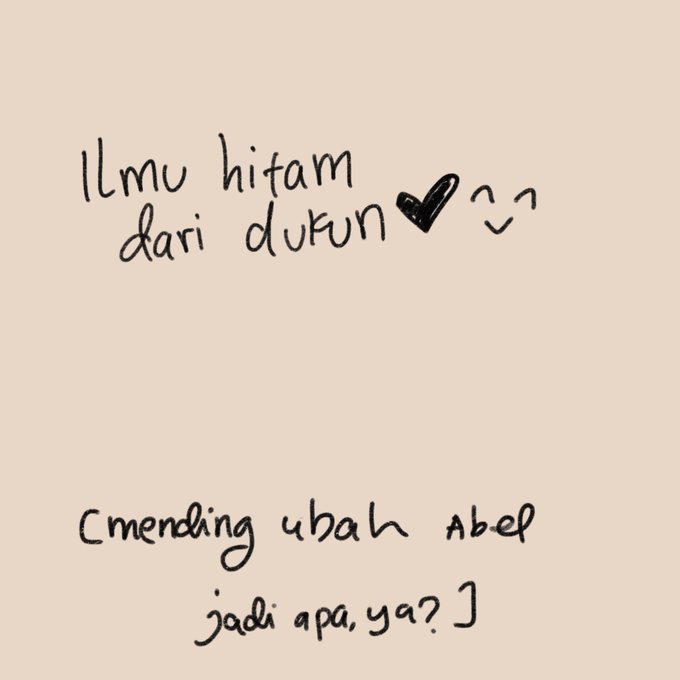 Ilmu hitam
dari dukun ♥ ^‿^
[mending ubah Abel
jadi apa, ya?]